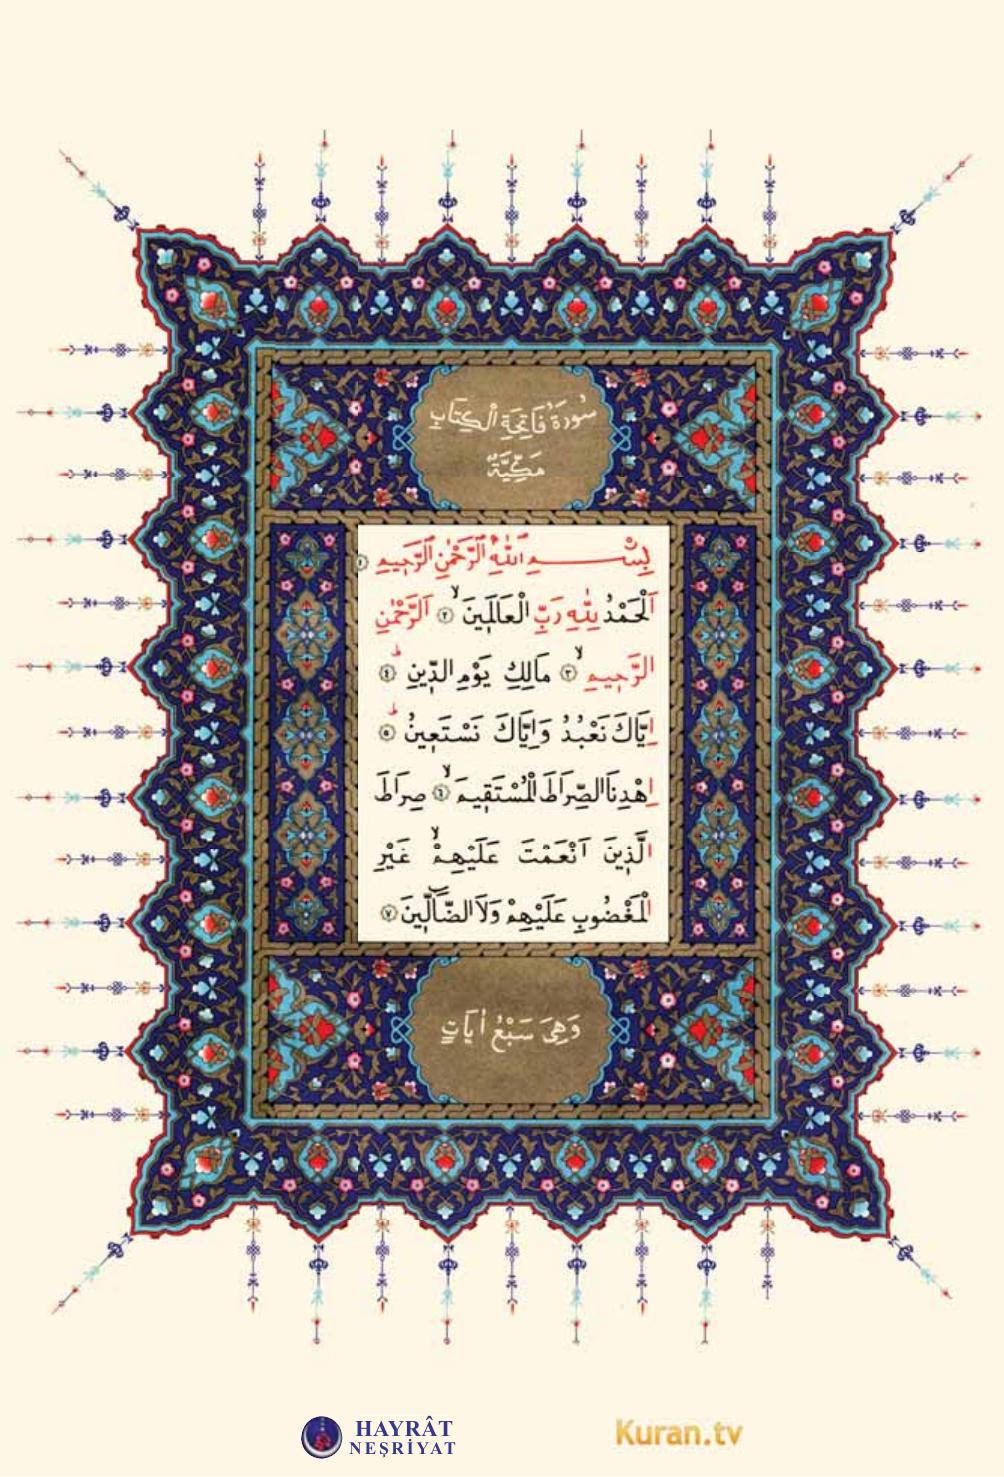 سُورَةُ فَاتِحَةِ الْكِتَابِ
مَكِّيَّةٌ
بِسْــــمِ اللّٰهِ الرَّحْمٰنِ الرَّحِيمِ ١
اَلْحَمْدُ لِلّٰهِ رَبِّ الْعَالَمِينَۙ ٢ اَلرَّحْمٰنِ
الرَّحِيمِۙ ٣ مَالِكِ يَوْمِ الدِّينِۜ ٤
اِيَّاكَ نَعْبُدُ وَاِيَّاكَ نَسْتَعِينُۜ ٥
اِهْدِنَا الصِّرَاطَ الْمُسْتَقِيمَۙ ٦ صِرَاطَ
الَّذِينَ اَنْعَمْتَ عَلَيْهِمْۙ غَيْرِ
الْمَغْضُوبِ عَلَيْهِمْ وَلَا الضَّٓالِّينَ ٧
وَهِيَ سَبْعُ اٰيَاتٍ
HAYRÂT
NEŞRİYAT
Kuran.tv